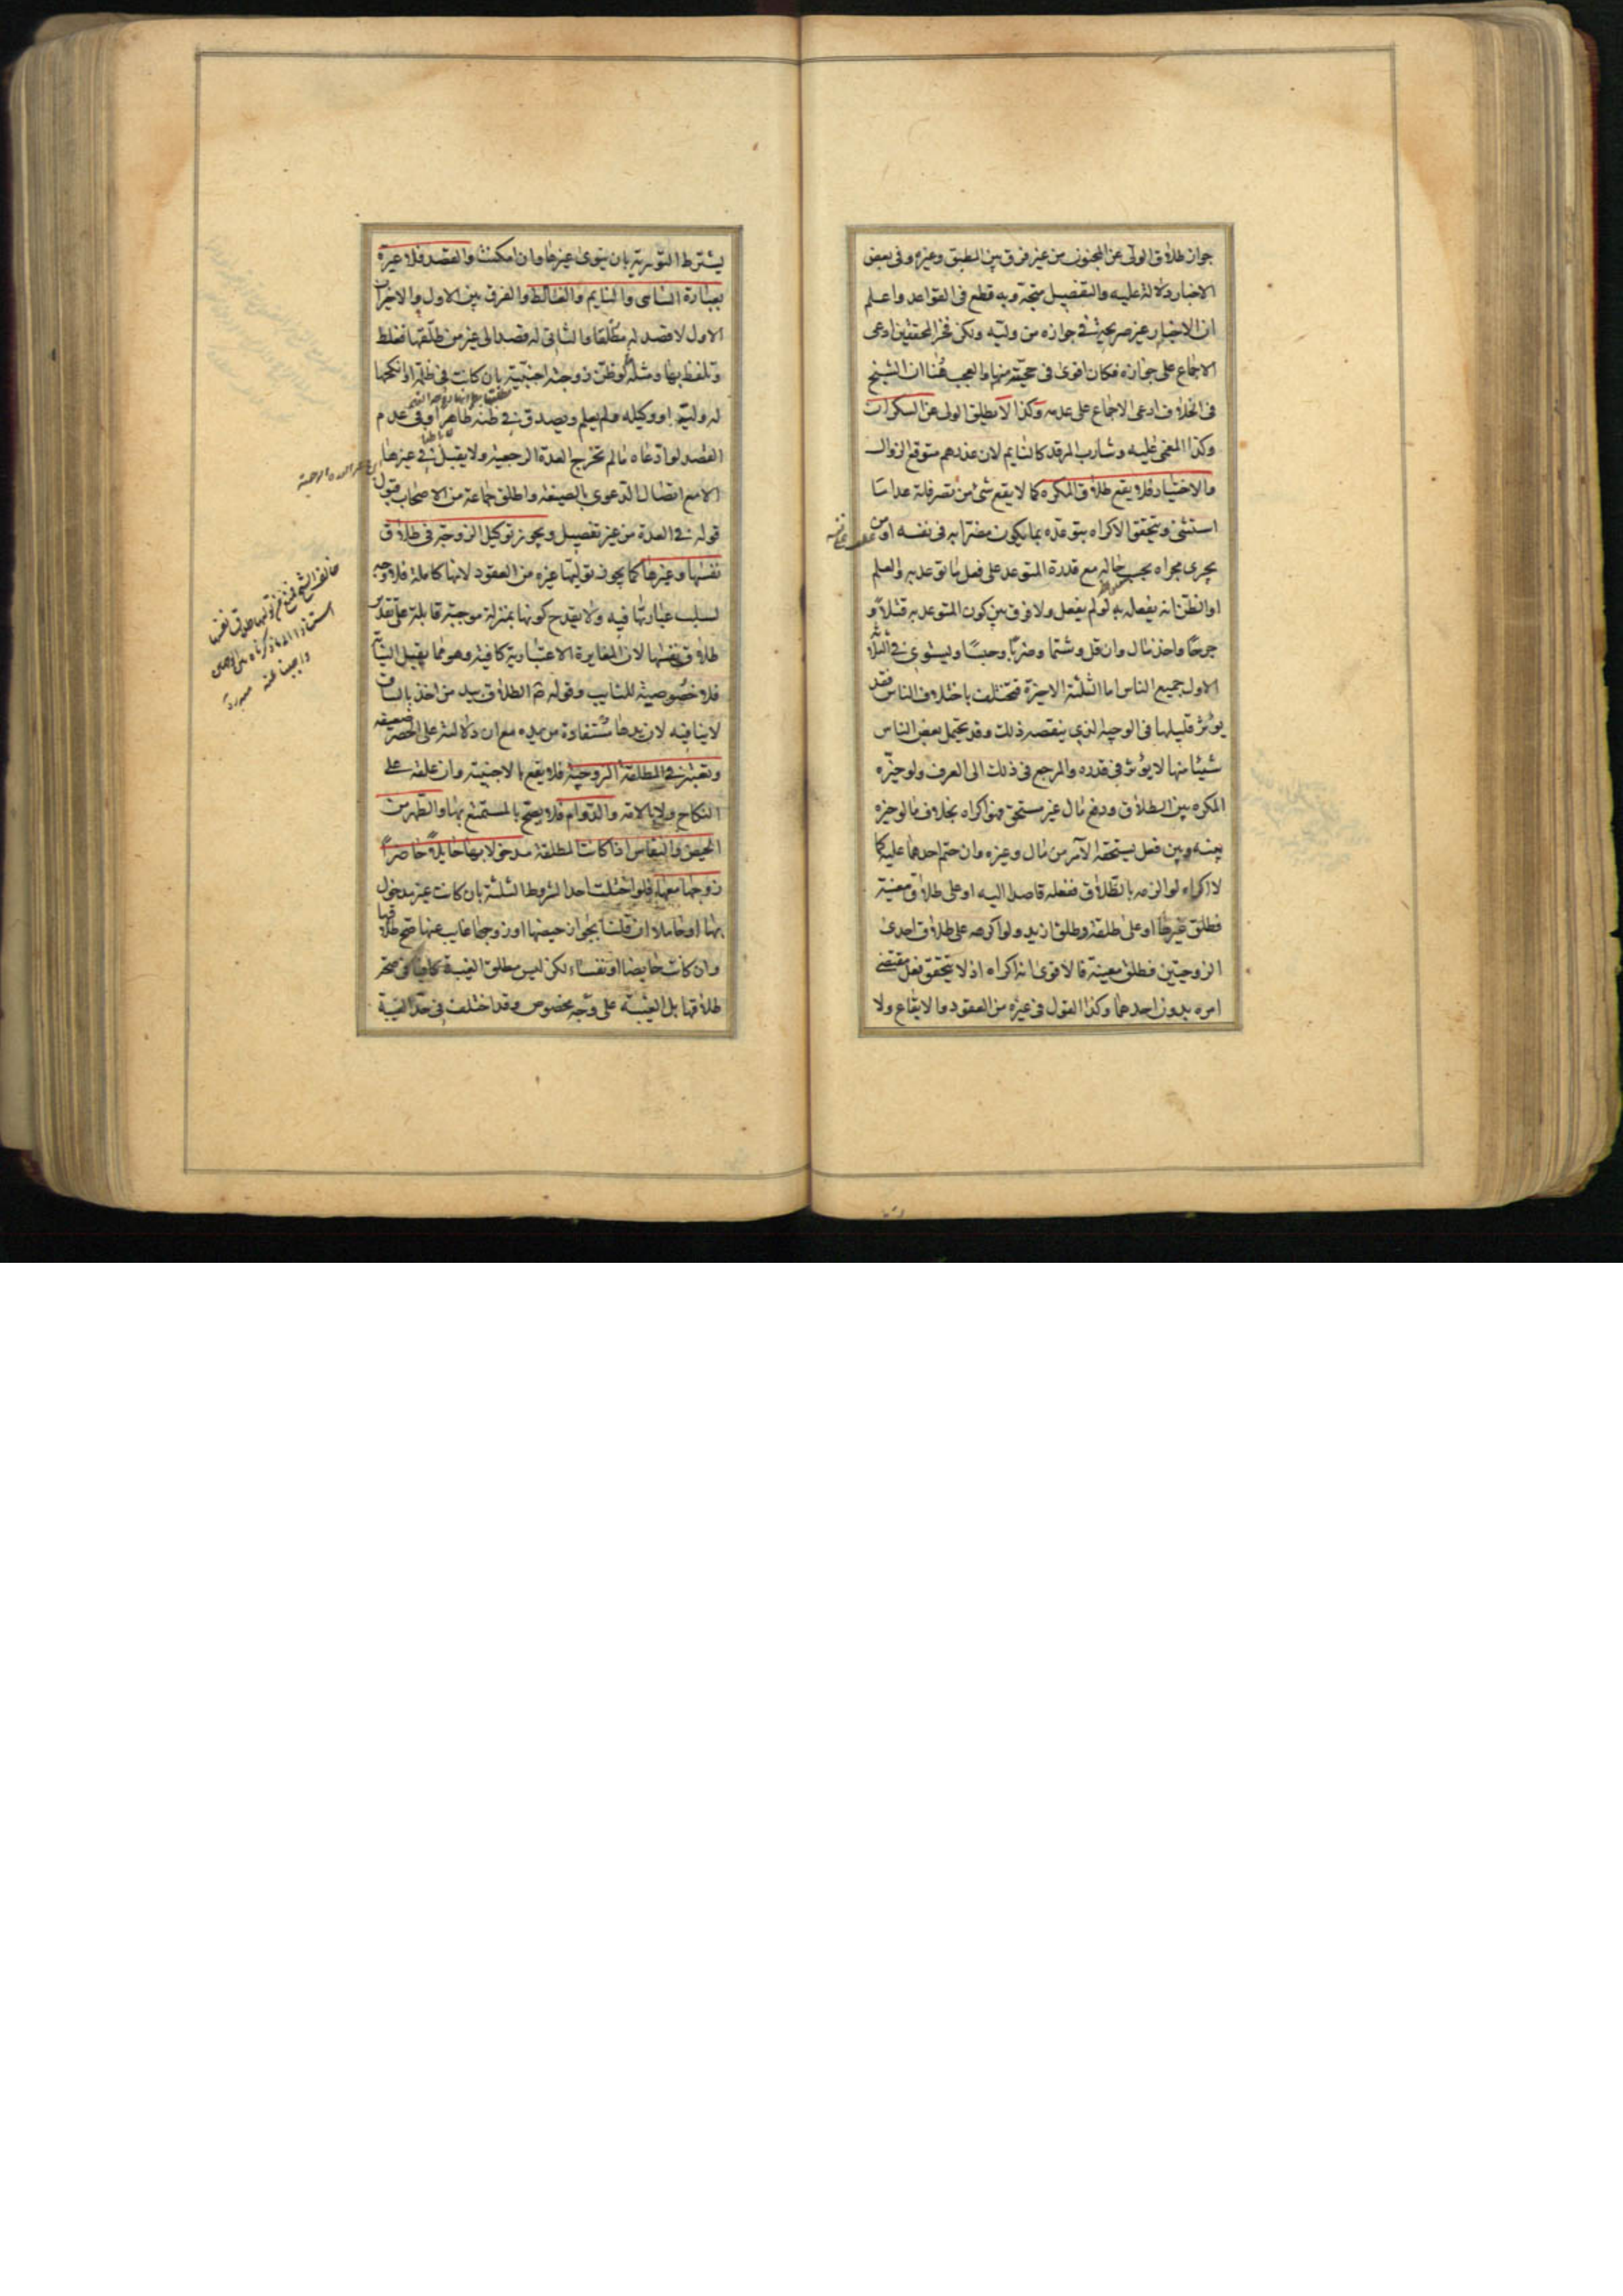 جواز طلاق الولى عن المجنون من غير فرق بين المطبق وغيره وفى بعض
الاخبار دلالة عليه والتفصيل متجه وبه قطع فى القواعد واعلم
ان الاخبار غير صريحة فى جوازه من وليه ولكن فخر المحققين ادعى
الاجماع على جوازه فكان اقوى فى حجيته منها والعجب هنا ان الشيخ
فى الخلاف ادعى الاجماع على عدمه وكذا لا يطلق الولى عن السكران
وكذا المغمى عليه وشارب المرقد كالنايم لان عذرهم متوقع الزوال
والاختيار فلا يقع طلاق المكره كما لا يقع شئ من تصرفاته عدا ما
استثنى ويتحقق الاكراه بتوعده بما يكون مضرا به فى نفسه او من
يجرى مجراه بحسب حاله مع قدرة المتوعد على فعل ما توعد به والعلم
او الظن انه يفعله به لو لم يفعل ولا فرق بين كون المتوعد به قتلا و
جرحا واخذ مال وان قل وشتما وضربا وحبسا ويستوى فى الثلاثة
الاول جميع الناس اما الثلثة الاخيرة فتختلف باختلاف الناس فقد
يؤثر قليلها فى الوجيه الذى ينقصه ذلك وقد يحتمل بعض الناس
شيئا منها لا يؤثر فى قدره والمرجع فى ذلك الى العرف ولو خيره
المكره بين الطلاق ودفع مال غير مستحق فهو اكراه بخلاف ما لو خيره
بينه وبين فعل يستحقه الآمر من مال وغيره وان حتم احدهما عليه كما
لا اكراه لو الزمه بالطلاق ففعله قاصدا اليه او على طلاق معينة
فطلق غيرها او على طلقة فطلق ازيد ولو اكرهه على طلاق احدى
الزوجتين فطلق معينة فالاقوى انه اكراه اذ لا يتحقق فعل مقتضى
امره بدون احدهما وكذا القول فى غيره من العقود والايقاع ولا
يشترط التورية بان ينوى غيرها وان امكنت والقصد فلا عبرة
بعبارة الساهى والنايم والغالط والفرق بين الاول والاخير ان
الاول لا قصد له مطلقا والثانى له قصد الى غير من طلقها فغلط
وتلفظ بها ومثله لو ظن زوجته اجنبية بان كانت فى ظلمة او انكحها
له وليه او وكيله ولم يعلم ويصدق فى ظنه ظاهرا وفى عدم
القصد لو ادعاه ما لم تخرج العدة الرجعية ولا يقبل فى غيرها
الا مع اتصال الدعوى بالصيغة واطلق جماعة من الاصحاب قبول
قوله فى العدة من غير تفصيل ويجوز توكيل الزوجة فى طلاق
نفسها وغيرها كما يجوز توليتها غيره من العقود لانها كاملة فلا وجه
لسلب عبارتها فيه ولا يقدح كونها بمنزلة موجبة قابلة على تقدير
طلاق نفسها لان المغايرة الاعتبارية كافية وهو مما يقبل النيابة
فلا خصوصية للنايب وقوله ص الطلاق بيد من اخذ بالساق
لا ينافيه لان يدها مستفادة من يده مع ان دلالته على الحصر ضعيفة
ويعتبر فى المطلقة الزوجية فلا يقع بالاجنبية وان علقه على
النكاح ولا بالامة والدوام فلا يصح بالمستمتع بها والطهر من
الحيض والنفاس اذا كانت المطلقة مدخولا بها حايلا حاضرا
زوجها معها فلو اختلت احد الشروط الثلثة بان كانت غير مدخول
بها او حاملا ان قلنا بجواز حيضها او زوجها غايب عنها صح طلاقها
وان كانت حايضا او نفساء لكن ليس مطلق الغيبة كافيا فى صحة
طلاقها بل الغيبة على وجه مخصوص وقد اختلف فى حد الغيبة